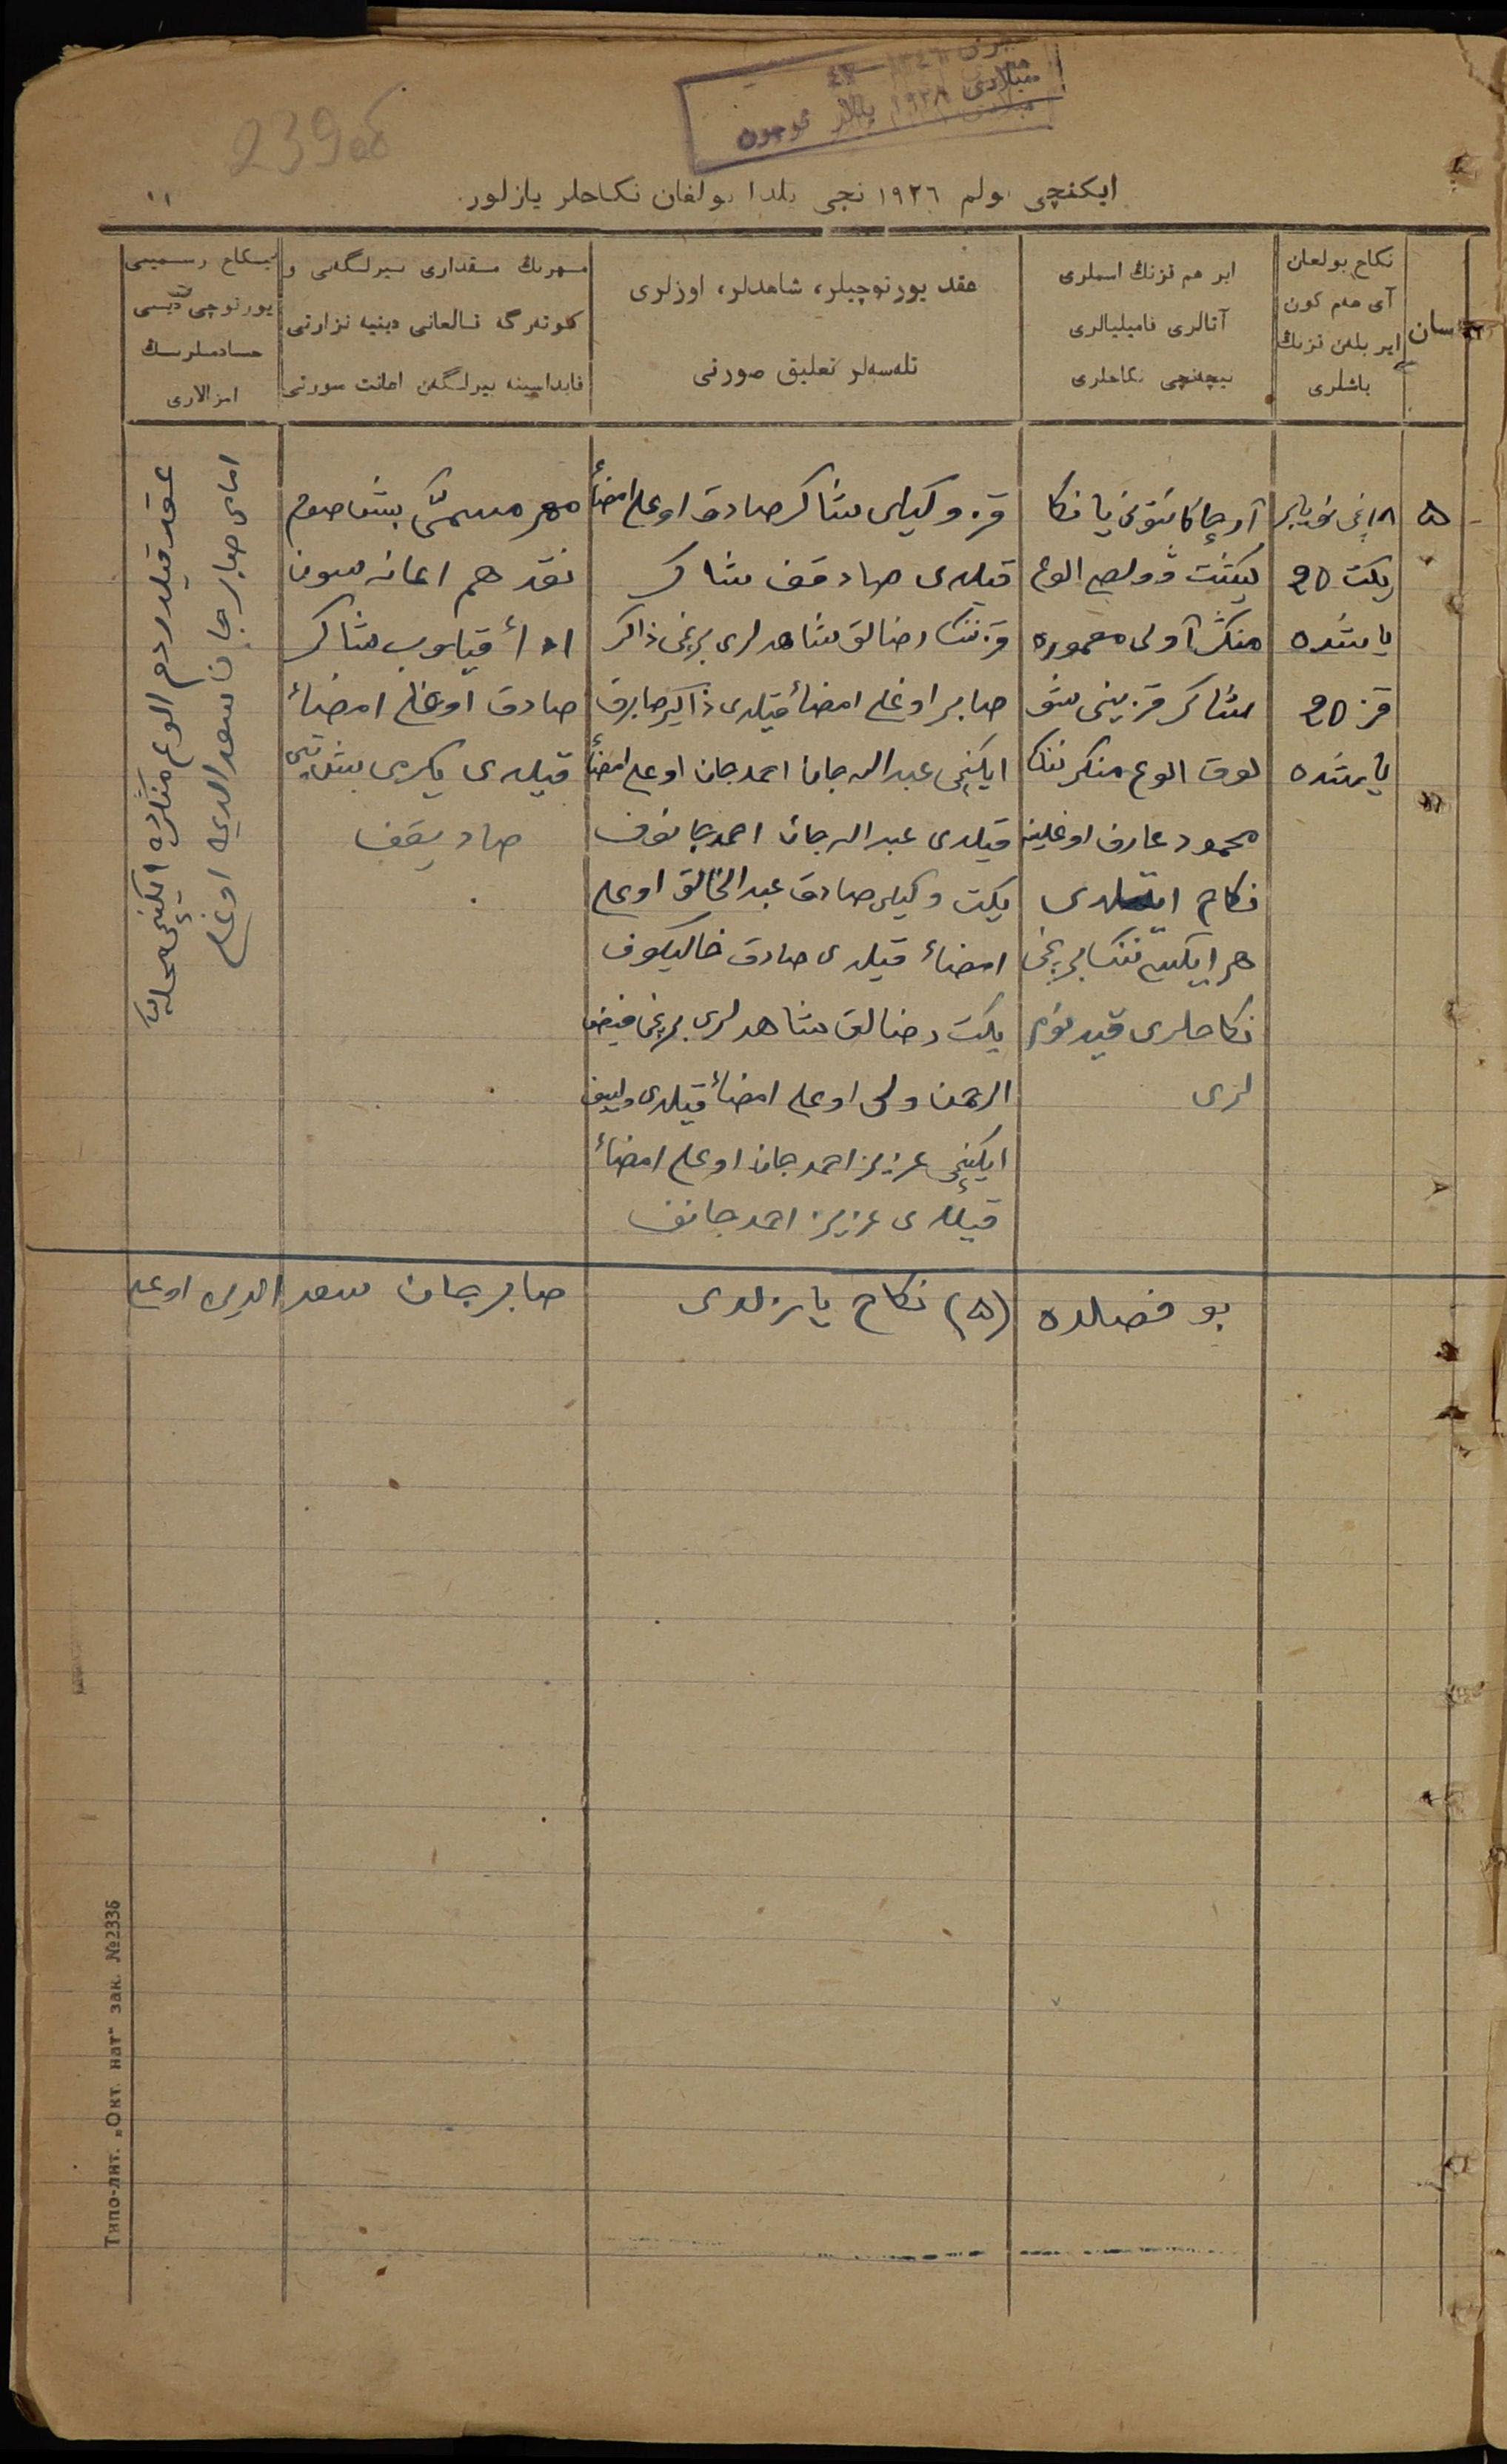 میلادی ۱۹۲۸ یللار ئوچون
239об
ایکنچی بولم ۱۹۲٦ نچی یلدا بولغان نکاحلر یازلور.
۱۱
سان
نکاح بولغان
آی هەم کون
ایر بلەن قزنڭ
یاشلری
ایر هم قزنڭ اسملری
آتالری فامیلیالری
نیچەنچی نکاحلری
عقد یورتوچیلر، شاهدلر، اوزلری
تلەسەلر تعلیق صورتی
مهرنڭ مقداری بیرلگەنی و
کوتەرگە قالغانی دینیه نزارتی
فایداسینه بیرلگەن اعانت صورتی
نیکاح رسمیسی
یورتوچی
امزالاری
۵
۱۸نچی نویابر
یکت 25
یاشنده
قز 25
یاشنده
آرچا کانتونی یاڭا
کیشت وولصی الوغ
منگر آولی معموره
شاکر قزینی شو
لوق الوغ منگرننڭ
محمود عارف اوغلینه
نکاح ایتلدی
هر ایکیسی ننڭ برنچی
نکاحلری قید نومر
لری
قز وکیلی شاکر صادق اوغلی امضاء
قیلدی صادقف شاکر
قزننڭ رضالق شاهدلری برنچی ذاکر
صابر اوغلی امضاء قیلدی ذاکیر صابرف
ایکنچی عبدالرجان احمدجان اوغلی امضاء
قیلدی عبدالرجان احمدجانوف
یکت وکیلی صادق عبدالخالق اوغلی
امضاء قیلدی صادق خالیکوف
یکت رضالق شاهدلری برنچی فیض
الرحمن ولی اوغلی امضاء قیلدی ولییف
ایکنچی عزیز احمدجان اوغلی امضاء
قیلدی عزیز احمدجانف
مهر مسمیّ بیش صوم
نقد هم اعانه سون
اداء قیلوب شاکر
صادق اوغلی امضاء
قیلدی یکرمی بیش تین
صادیقف
عقد قیلدردم الوغ منگرده ایکنچی محله
امامی صابرجان سعدالدین اوغلی
بو فصلده (۵) نکاح یازلدی
صابرجان سعدالدین اوغلی
Типо-лит. „Окт. нат" зак. №2336